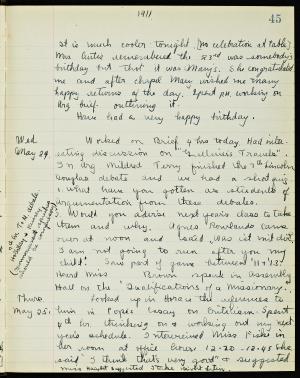 1911
45
It is much cooler tonight. [No celebration at table]
Mrs. remembered the 23rd was somebody's
birthday but that it was Mary's. She congratulated
me and after chapel Mary wished me many
happy returns of the day. Spent P.M. working on
Arg. brief outlining it.
Have had a very happy birthday.
Wed
May 24
Worked on Brief 4 hrs today. Had inter-
esting discussion on "Gulliver's Travels".
In Arg Mildred finished the 7th Lincoln
Douglas debate and we had a
1. What have you gotten as students of
argumentation from these debates.
2. Would you advise next year's class to take
them and why. Agnes Rowlands came
over at noon and said
"I am not going to run after you my
child". Saw part of game between '11 + '13.
Heard Miss Brown speak in Assembly
Hall on the "Qualifications of a Missionary."
Thurs.
May 25.
Looked up in Horace the references to
him in Pope's Essay on Criticism. Spent
4th hr. thinking on + working out my next
year's schedule. Interviewed Miss
her room at office hours. 12.30-12.45 She
said "I think that's very good" + suggested
Miss